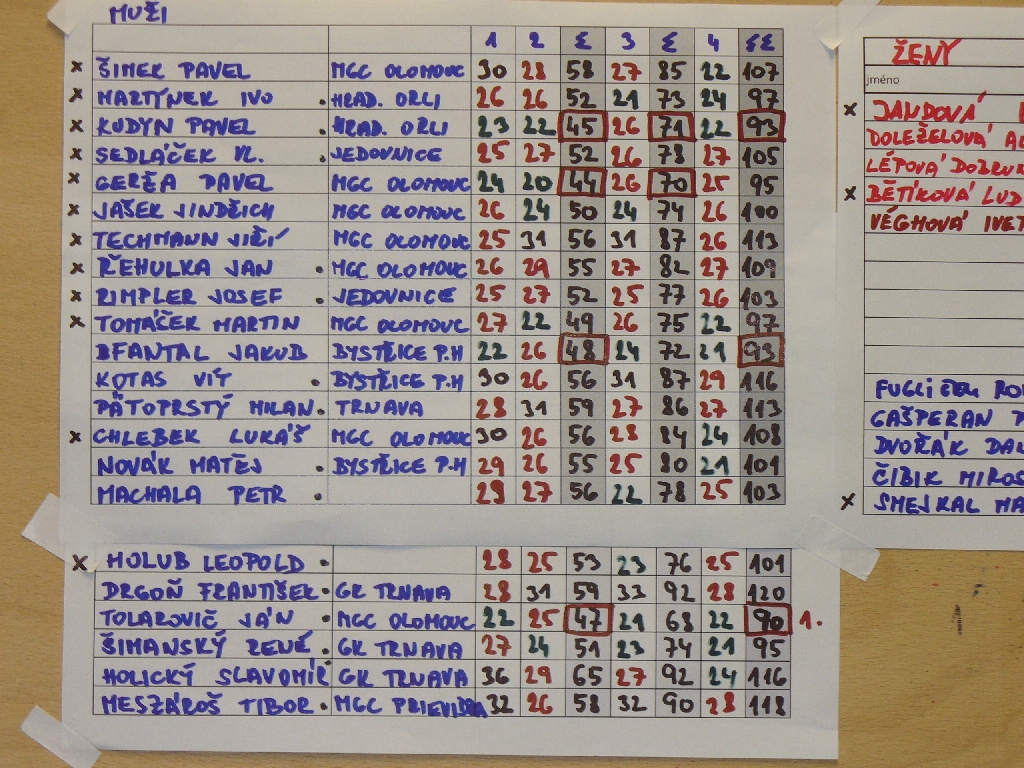 MUŽI
1 2 Σ 3 Σ 4 ΣΣ
x ŠIMEK PAVEL MGC OLOMOUC 30 28 58 27 85 22 107
x MARTÝNEK IVO . HRAD. ORLI 26 26 52 21 73 24 97
x KUDYN PAVEL . HRAD. ORLI 23 22 45 26 71 22 93
x SEDLÁČEK VL. . JEDOVNICE 25 27 52 26 78 27 105
x GERŽA PAVEL MGC OLOMOUC 24 20 44 26 70 25 95
x JAŠEK JINDŘICH MGC OLOMOUC 26 24 50 24 74 26 100
x TECHMANN JIŘÍ MGC OLOMOUC 25 31 56 31 87 26 113
x ŘEHULKA JAN . MGC OLOMOUC 26 29 55 27 82 27 109
x RIMPLER JOSEF . JEDOVNICE 25 27 52 25 77 26 103
x TOMÁČEK MARTIN MGC OLOMOUC 27 22 49 26 75 22 97
BFANTAL JAKUB BYSTŘICE P.H 22 26 48 24 72 21 93
KOTAS VÍT . BYSTŘICE P.H 30 26 56 31 87 29 116
PÄTOPRSTÝ MILAN. TRNAVA 28 31 59 27 86 27 113
x CHLEBEK LUKÁŠ MGC OLOMOUC 30 26 56 28 84 24 108
NOVÁK MATĚJ . BYSTŘICE P.H 29 26 55 25 80 21 101
MACHALA PETR . 29 27 56 22 78 25 103
x HOLUB LEOPOLD . 28 25 53 23 76 25 101
DRGOŇ FRANTIŠEK. GK TRNAVA 28 31 59 33 92 28 120
TOLAROVIČ JÁN . MGC OLOMOUC 22 25 47 21 68 22 90 1.
ŠIMANSKÝ RENÉ . GK TRNAVA 27 24 51 23 74 21 95
HOLICKÝ SLAVOMÍR GK TRNAVA 36 29 65 27 92 24 116
MESZÁROŠ TIBOR . MGC PRIEVIDZA 32 26 58 32 90 28 118
ŽENY
jméno
x JANDOVÁ
DOLEŽELOVÁ AL
LÉPOVÁ DOBRUN
x BĚTÍKOVÁ LUD
VÉGHOVÁ IVET
GAŠPERAN P
DVOŘÁK DAN
ČIBIK MIROS
x SMEJKAL MA